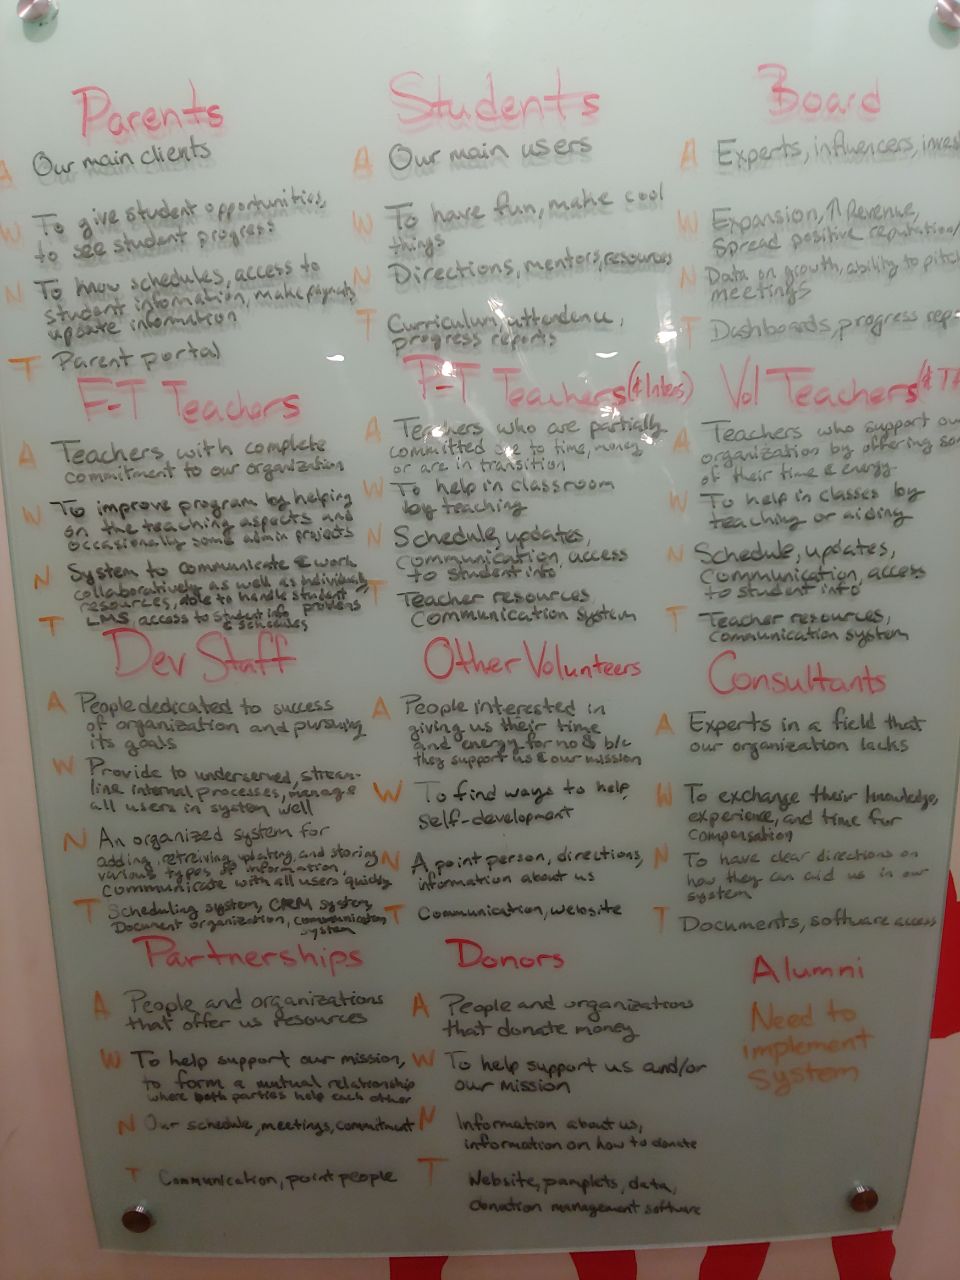 Parents
A Our main clients
W To give student opportunities,
to see student progress
N To know schedules, access to
student information, make payments
update information
T Parent portal
Students
A Our main users
W To have fun, make cool
things
N Directions, mentors, resources
T Curriculum, attendence,
progress reports
Board
A Experts, influencers,
W Expansion, ↑ Revenue,
Spread positive reputation/
N Data on growth, ability to pitch
meetings
T Dashboards, progress
F-T Teachers
A Teachers with complete
commitment to our organization
W To improve program by helping
on the teaching aspects and
occasionally some admin projects
N System to communicate & work
collaboratively as well as individually,
resources, able to handle student
problems
T LMS, access to student info
& schedules
P-T Teachers (& Inters)
A Teachers who are partially
committed due to time, money
or are in transition
W To help in classroom
by teaching
N Schedule, updates,
communication, access
to student info
T Teacher resources,
Communication system
Vol Teachers (&
A Teachers who support
organization by offering
of their time & energy
W To help in classes by
teaching or aiding
N Schedule, updates,
communication, access
to student info
T Teacher resources,
communication system
Dev Staff
A People dedicated to success
of organization and pursuing
its goals
W Provide to underserved, stream-
line internal processes, manage
all users in system well
N An organized system for
adding, retreiving, updating, and storing
various types of information,
communicate with all users quickly
T Scheduling system, CRM system,
Document organization, communication
system
Other Volunteers
A People interested in
giving us their time
and energy for no $ b/c
they support us & our mission
W To find ways to help,
self-development
N A point person, directions,
information about us
T Communication, website
Consultants
A Experts in a field that
our organization lacks
W To exchange their knowledge,
experience, and time for
compensation
N To have clear directions on
how they can aid us in our
system
T Documents, software access
Partnerships
A People and organizations
that offer us resources
W To help support our mission,
to form a mutual relationship
where both parties help each other
N Our schedule, meetings, commitment
T Communication, point people
Donors
A People and organizations
that donate money
W To help support us and/or
our mission
N Information about us,
information on how to donate
T Website, pamplets, data,
donation management software
Alumni
Need to
implement
system